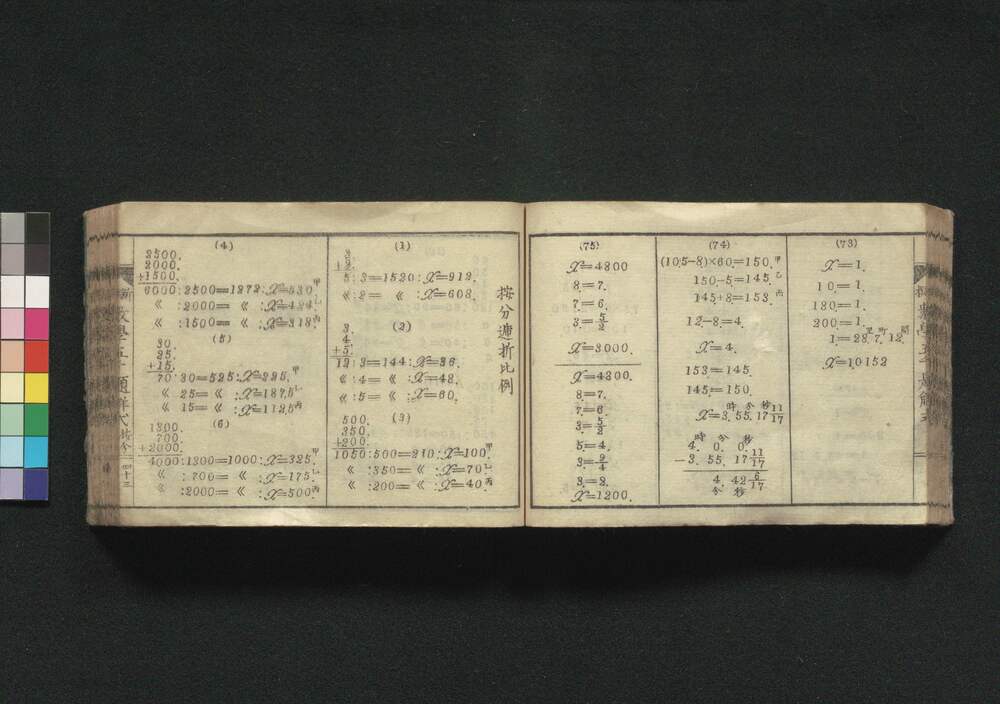 (73)
X=1.
10=1.
180=1.
200=1.
里 町 間
1=28. 7. 12.
X=10152
(74)
(10,5-8)×60.=150.甲
150-5=145.乙
145+8=153.丙
12-8=4.
X=4.
153=145.
145=150.
時 分 秒
X=3. 55. 17 11/17
時 分 秒
4. 0. 0.
-3. 55. 17 11/17
4. 42 6/17
分 秒
(75)
X=4800
8=7.
7=6.
3=5/2
X=3000.
X=4200.
8=7.
7=6.
3=5/2
5=4.
3=9/4
3=2.
X=1200.
按分遞折比例
(1)
3
+2.
5:3=1520:X=912.
《:2= 《 :X=608.
(2)
3.
4.
+5.
12:3=144:X=36.
《:4= 《 :X=48.
《:5= 《 :X=60.
(3)
500.
350.
+200.
1050:500=210:X=100.甲
《 :350= 《 :X=70.乙
《 :200= 《 :X=40.丙
(4)
2500.
2000.
+1500.
6000:2500=1272:X=530.甲
《 :2000= 《 :X=424.乙
《 :1500= 《 :X=318.丙
(5)
30.
25.
+15.
70:30=525:X=225.甲
《 25= 《 :X=187,5乙
《 15= 《 :X=112,5丙
(6)
1300.
700.
+2000.
4000:1300=1000:X=325.甲
《 :700= 《 :X=175.乙
《 :2000= 《 :X=500.丙
四十三